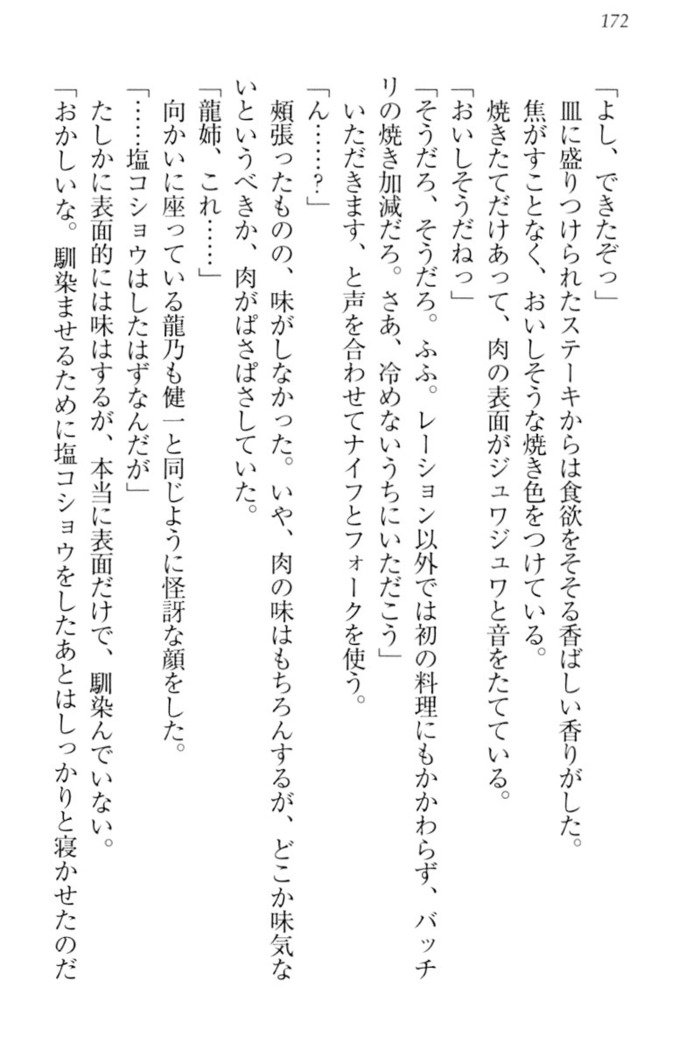 172
「よし、できたぞっ」
皿に盛りつけられたステーキからは食欲をそそる香ばしい香りがした。
焦がすことなく、おいしそうな焼き色をつけている。
焼きたてだけあって、肉の表面がジュワジュワと音をたてている。
「おいしそうだねっ」
「そうだろ、そうだろ。ふふ。レーション以外では初の料理にもかかわらず、バッチ
リの焼き加減だろ。さあ、冷めないうちにいただこう」
いただきます、と声を合わせてナイフとフォークを使う。
「ん……？」
頬張ったものの、味がしなかった。いや、肉の味はもちろんするが、どこか味気な
いというべきか、肉がぱさぱさしていた。
「龍姉、これ……」
向かいに座っている龍乃も健一と同じように怪訝な顔をした。
「……塩コショウはしたはずなんだが」
たしかに表面的には味はするが、本当に表面だけで、馴染んでいない。
「おかしいな。馴染ませるために塩コショウをしたあとはしっかりと寝かせたのだ